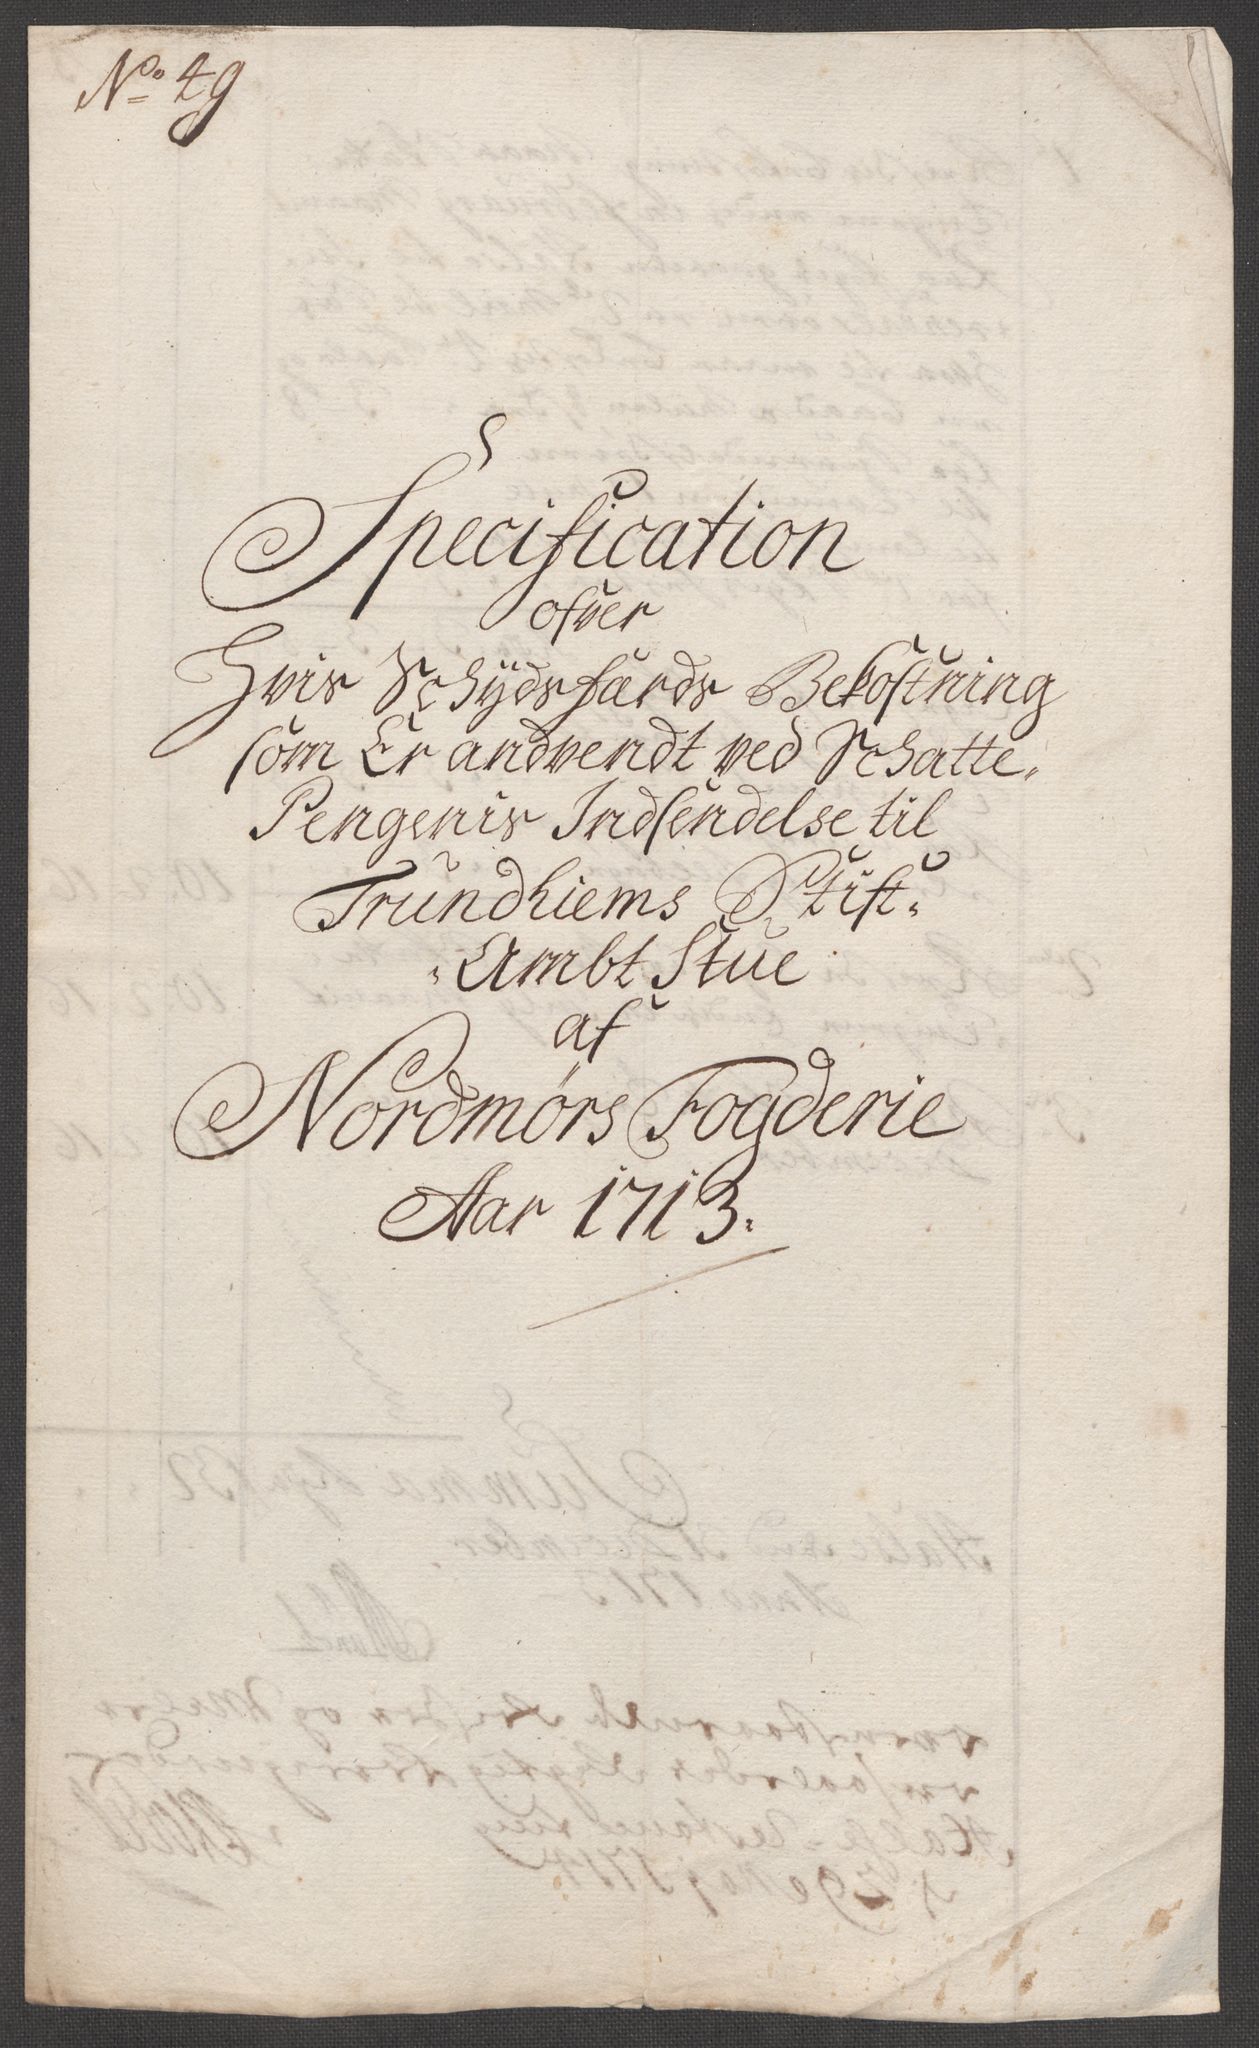 No 49
Specification
ofver
Hvis Schÿdsfærds Bekostning
som Er andvendt ved Schatte,
Pengenis Indsendelse til
Trundhiems Stift,
Ambt Stue
af
Nordmørs Fogderie
Aar 1713.